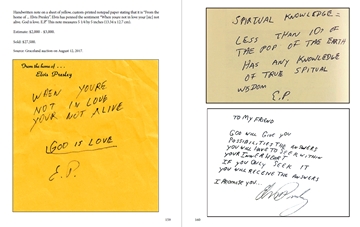 Handwritten note on a sheet of yellow, custom-printed notepad paper stating that it is "From the
home of ... Elvis Presley." Elvis has penned the sentiment "When youre not in love your [sic] not
alive. God is love. E.P." This note measures 5 1/4 by 5 inches (13.34 x 12.7 cm).
Estimate: $2,000 - $3,000.
Sold: $27,500.
Source: Graceland auction on August 12, 2017.
From the home of ...
Elvis Presley
WHEN YOURE
NOT IN LOVE
YOUR NOT ALIVE
GOD IS LOVE
E.P.
SPIRITUAL KNOWLEDGE:
LESS THAN 10% OF
THE POP OF THE EARTH
HAS ANY KNOWLEDGE
OF TRUE SPITUAL
WISDOM
E.P.
TO MY FRIEND
GOD WILL GIVE YOU
POSSIBILITIES THE ANSWERS
YOU WILL HAVE TO SEEK WITHIN
YOUR INNER HEART
IF YOU ONLY SEEK IT
YOU WILL RECEIVE THE ANSWERS
I PROMISE YOU...
Elvis Presley